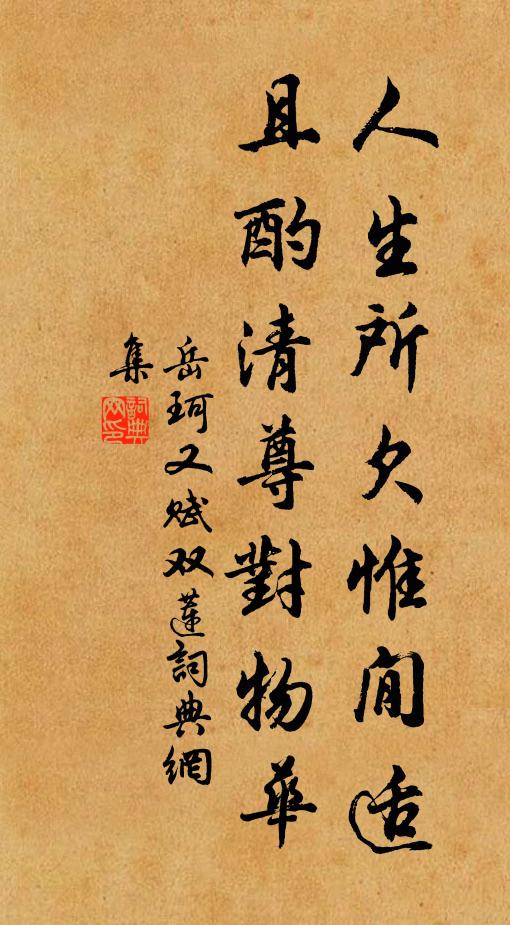 人生所欠惟閒适
且酌清尊對物華
岳珂又賦双蓮詞典網
集
詞典網印